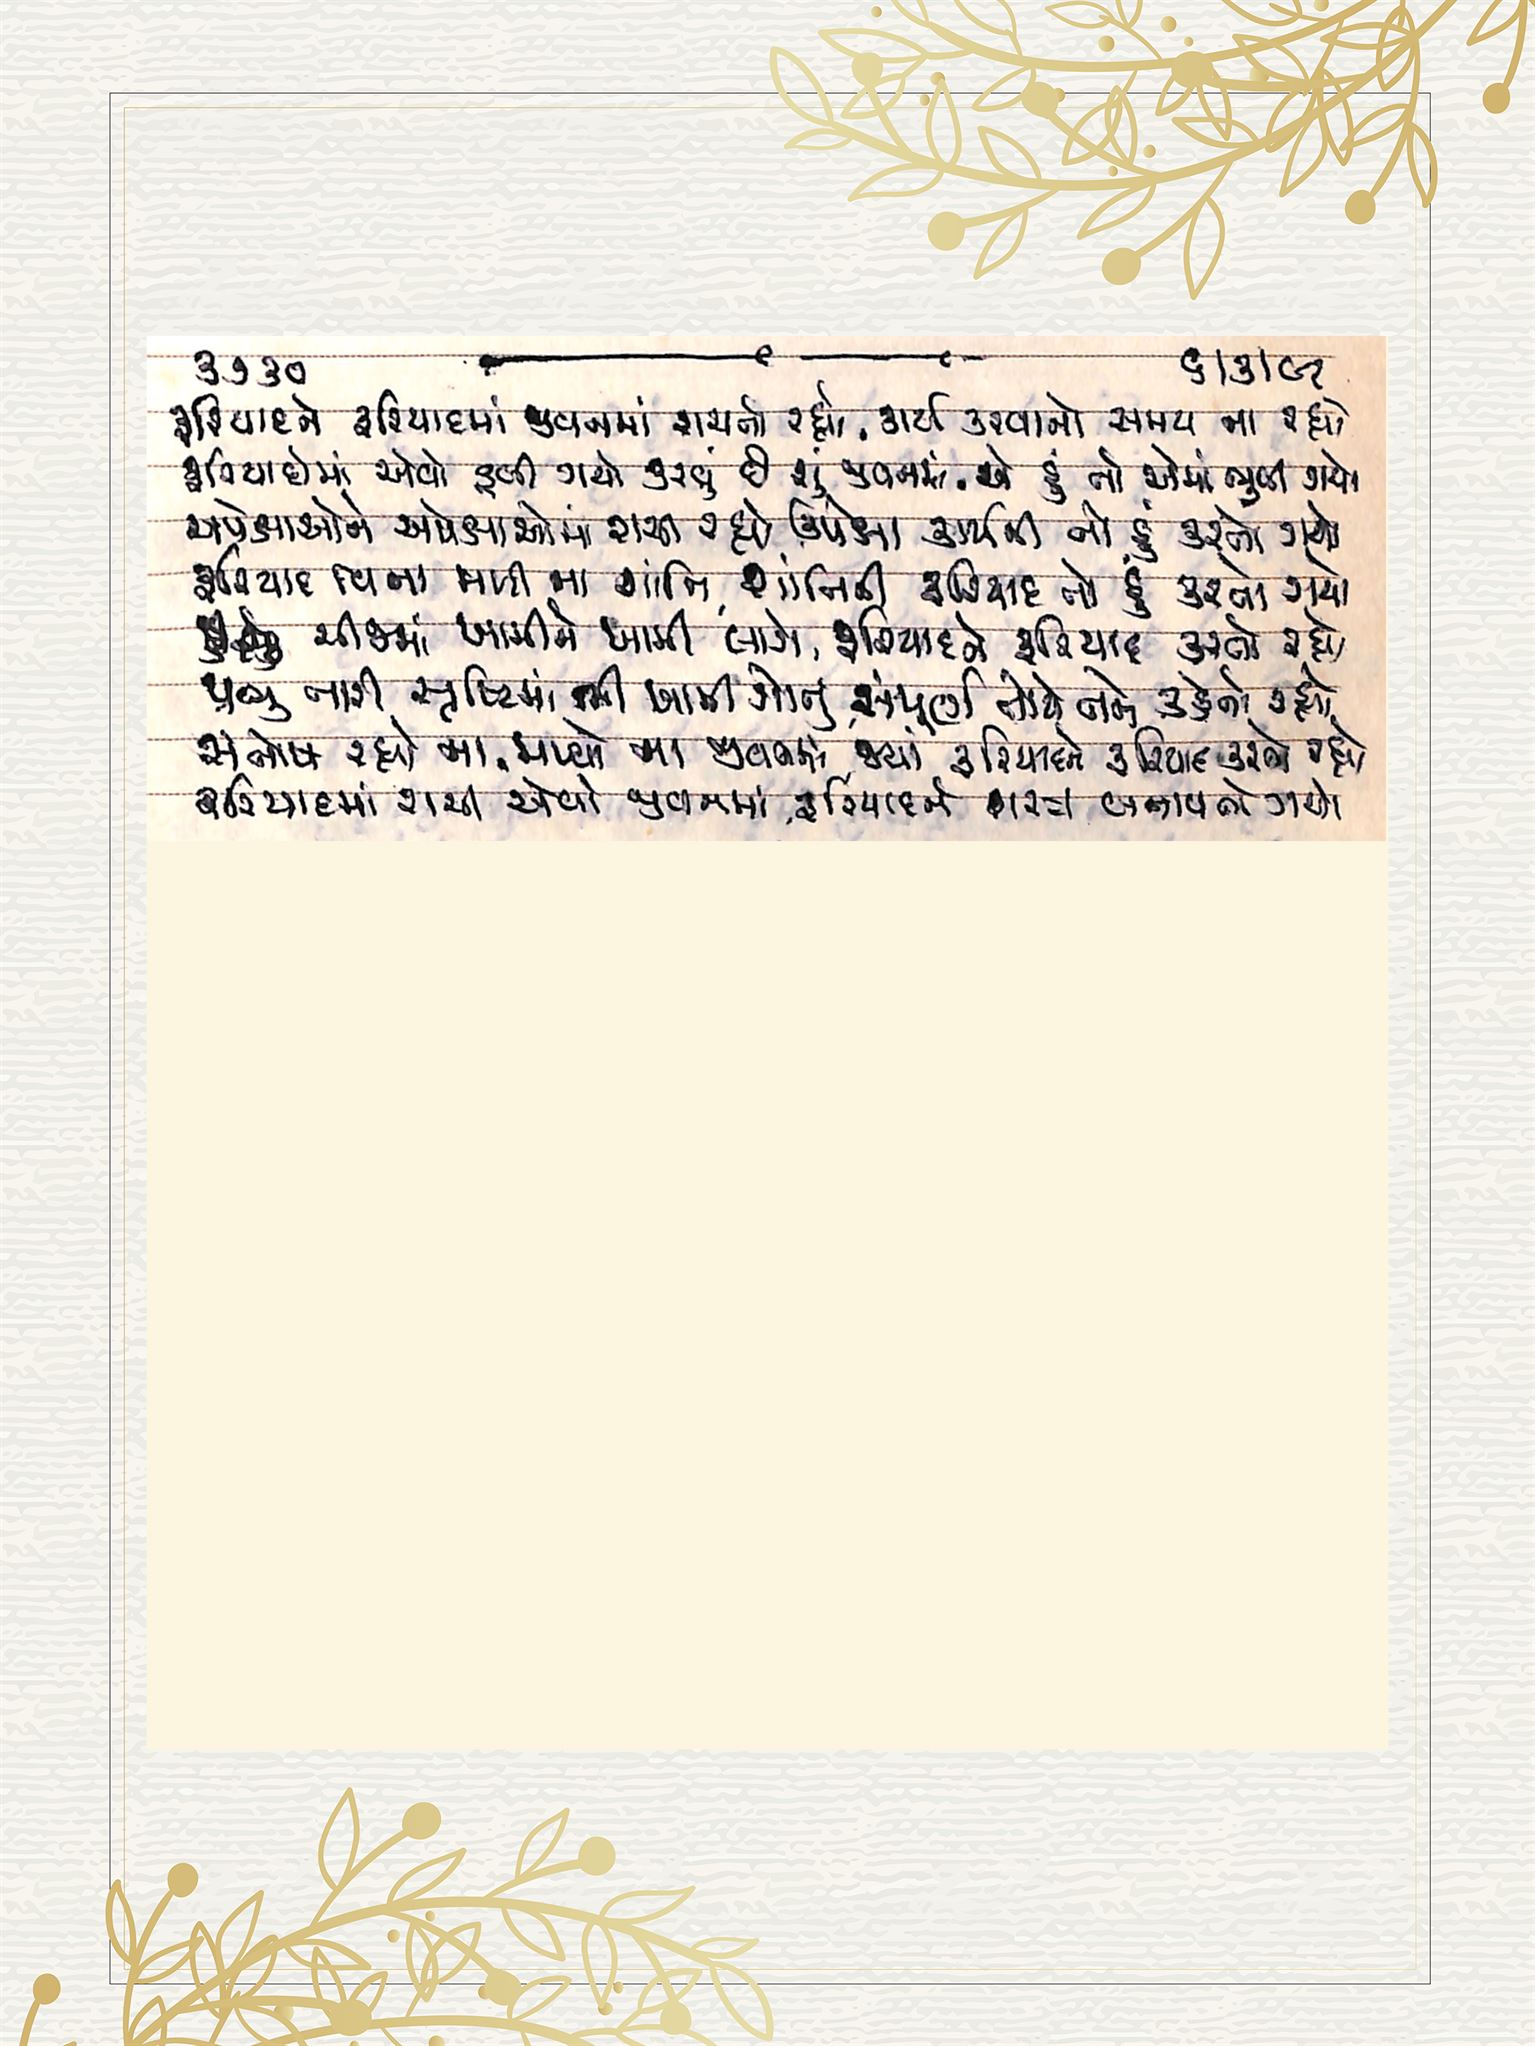 ૩૧૩૦ ૬/૩/૯૧
ફરિયાદને ફરિયાદમાં જીવનમાં રાચતો રહ્યો, કાર્ય કરવાનો સમય ના રહ્યો
ફરિયાદોમાં એવો ડૂબી ગયો કરવું છે શું જીવનમાં, એ હું તો એમાં ભુલી ગયો
અપેક્ષાઓને અપેક્ષાઓમાં રાચી રહ્યો ઉપેક્ષા કાર્યની તો હું કરતો ગયો
ફરિયાદ વિના મળી ના શાંતિ, શાંતિની ફરિયાદ તો હું કરતો ગયો
ચીજમાં ખામીને ખામી લાગે, ફરિયાદને ફરિયાદ કરતો રહ્યો
પ્રભુ તારી સૃષ્ટિમાં ખામી ગોતું, સંપૂર્ણ તોયે તને કહેતો રહ્યો
સંતોષ રહ્યો ના, પામ્યો ના જીવનમાં, જ્યાં ફરિયાદને ફરિયાદ કરતો રહ્યો
ફરિયાદમાં રાચી એવો જીવનમાં, ફરિયાદને બનાવતો ગયો